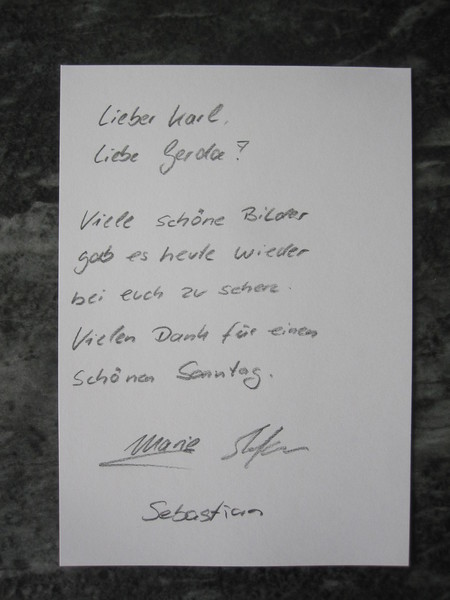 Lieber Karl,
Liebe Gerda?
Viele schöne Bilder
gab es heute wieder
bei euch zu sehen.
Vielen Dank für einen
schönen Sonntag.
Marie
Sebastian